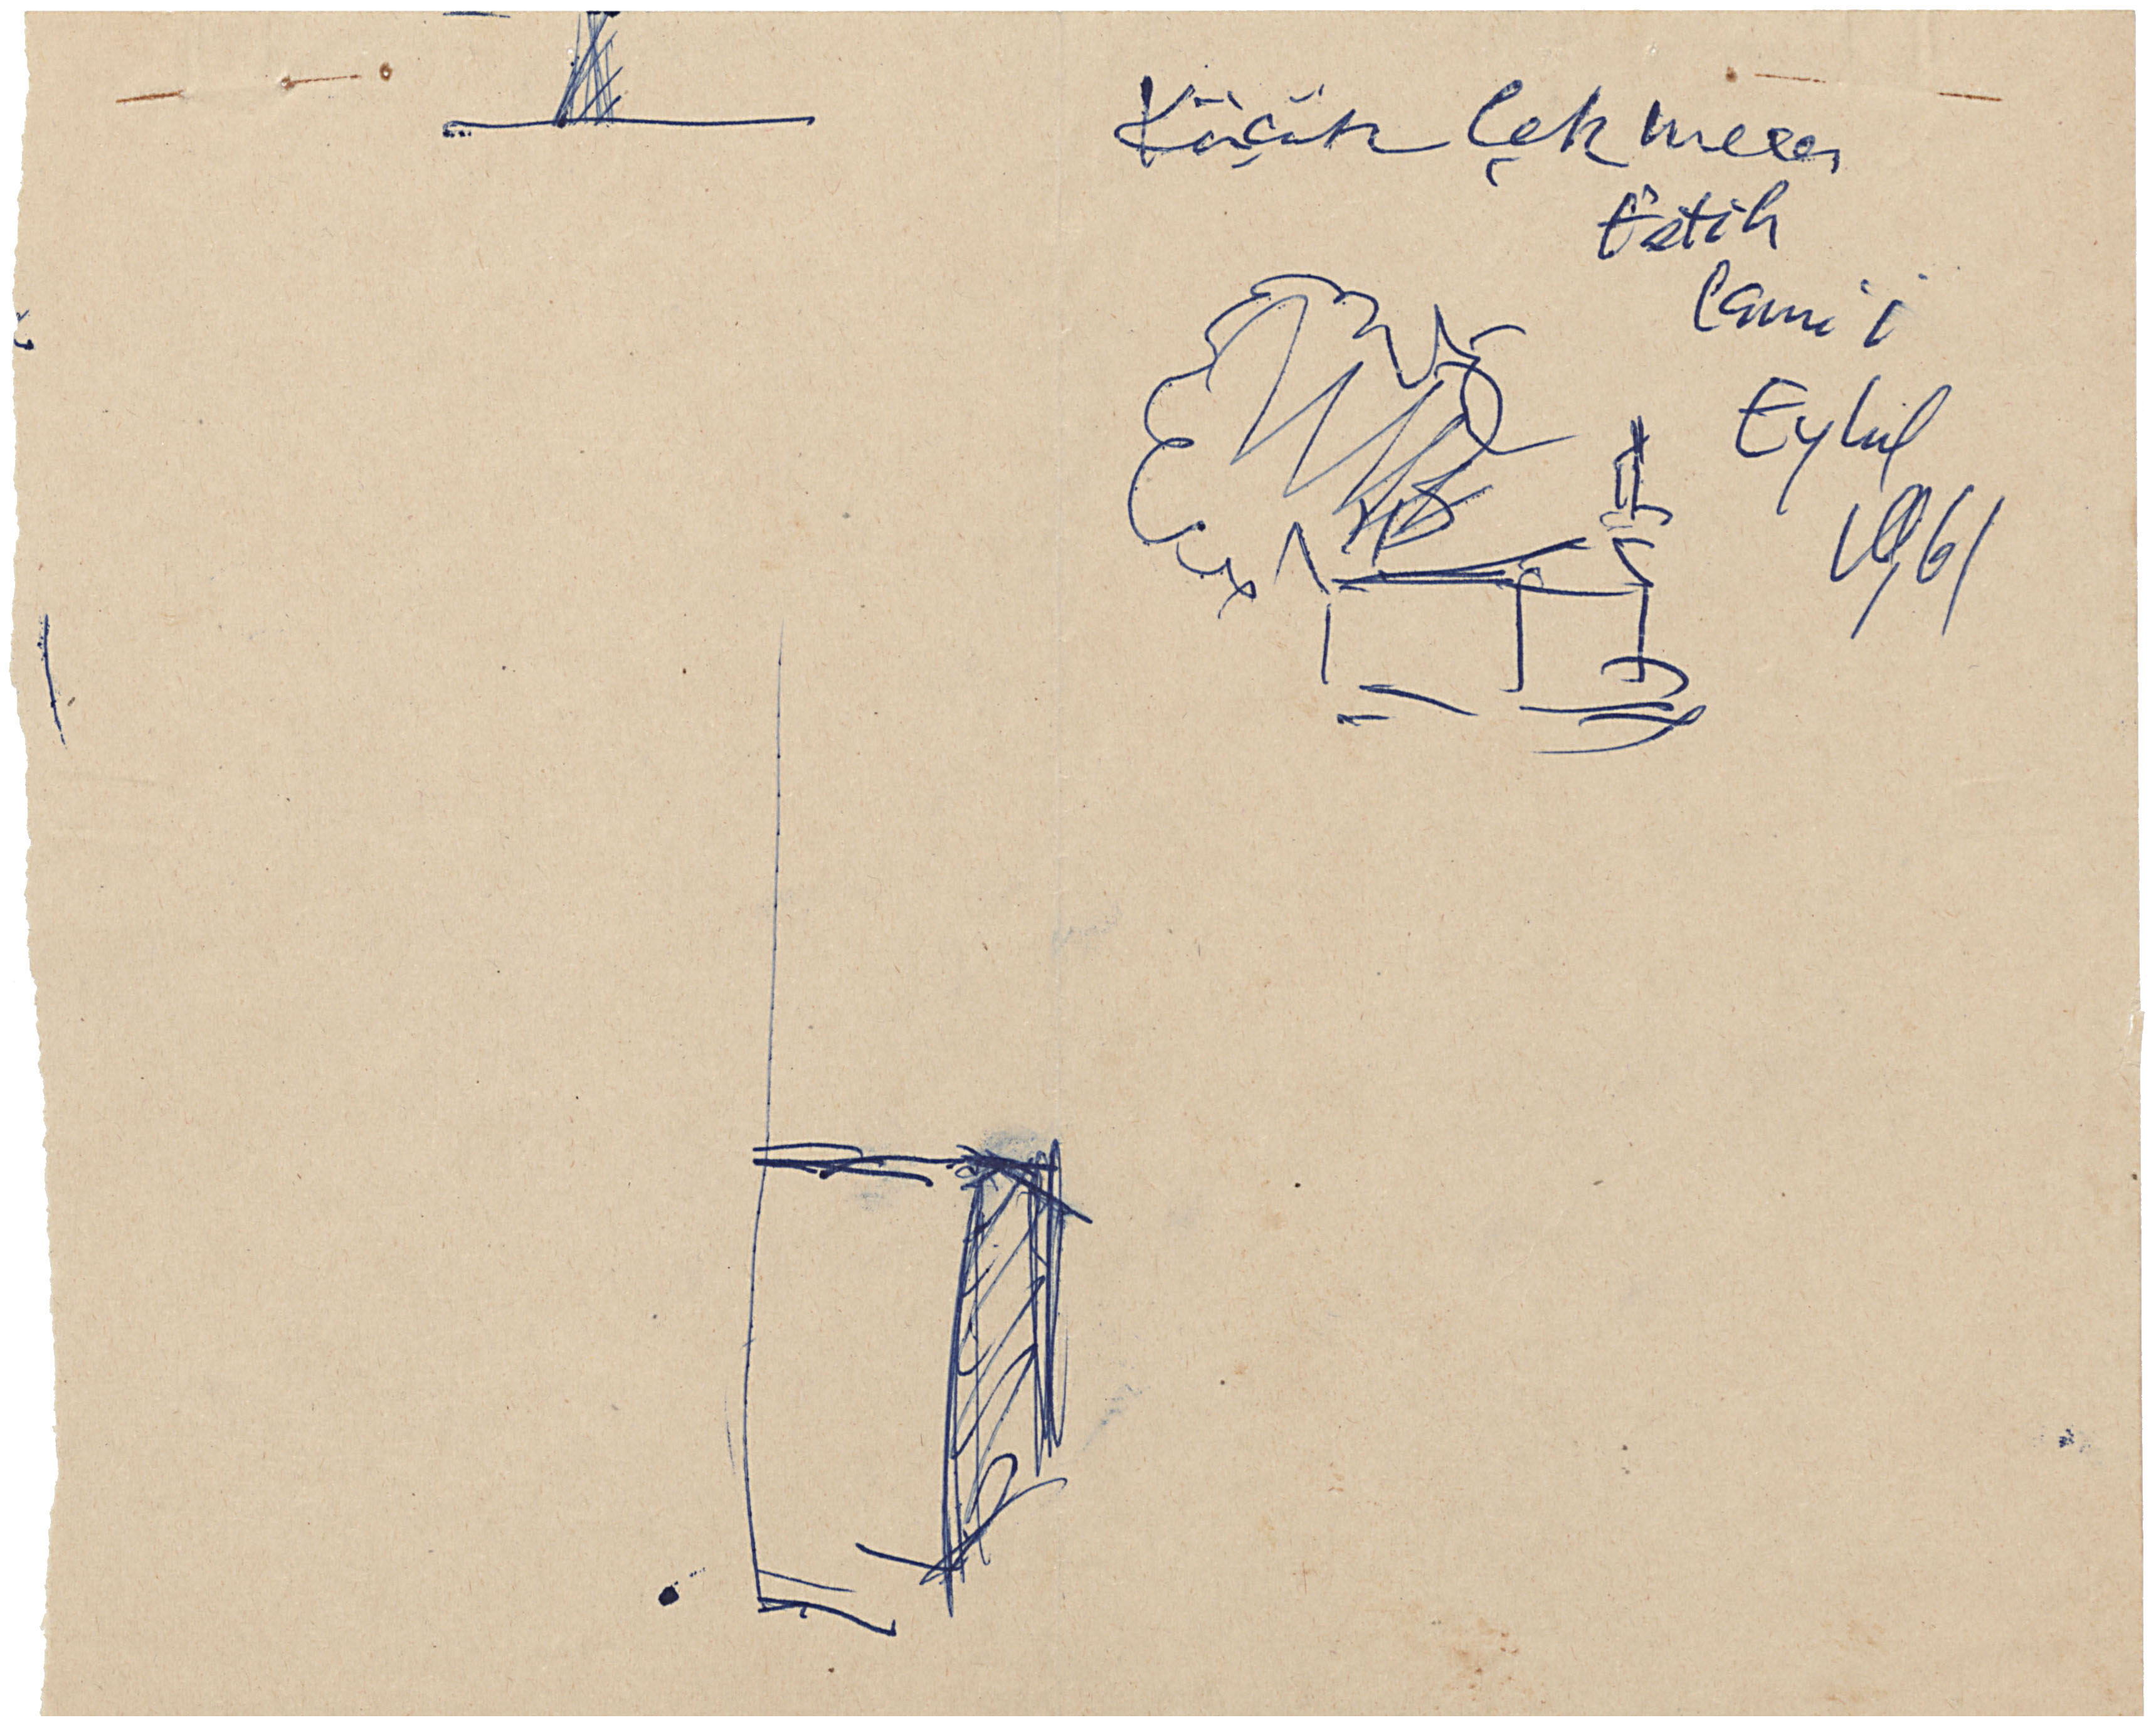 Küçük Çekmece
Fatih
Cami'i
Eylul
/61